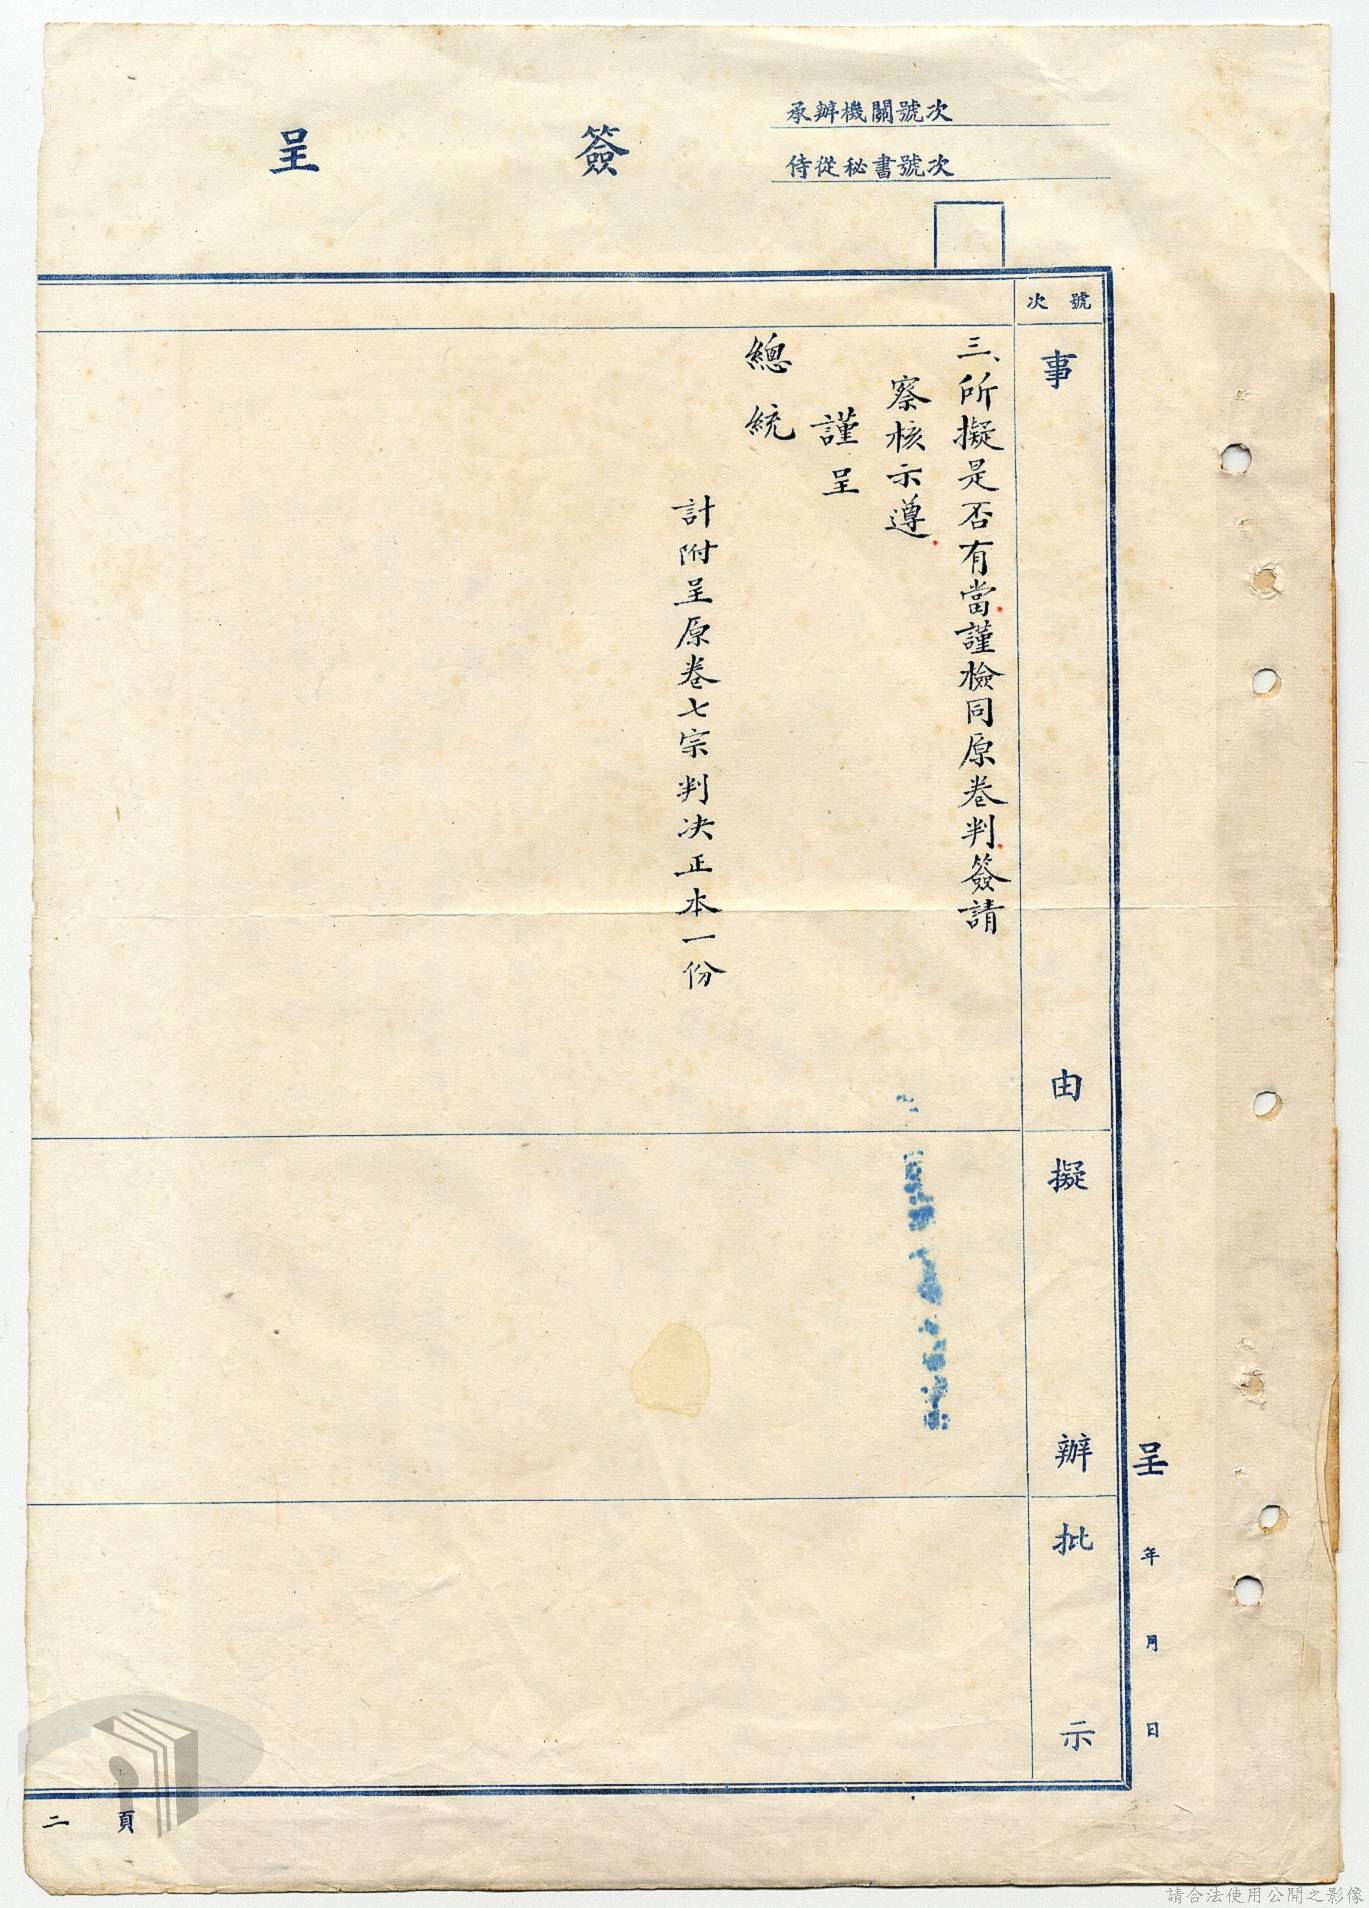 簽呈
承辦機關號次
侍從秘書號次
號次
事由
擬辦
批示
三、所擬是否有當謹檢同原卷判簽請
察核示遵
謹呈
總統
計附呈原卷七宗判決正本一份
呈 年 月 日
二頁
請合法使用公開之影像